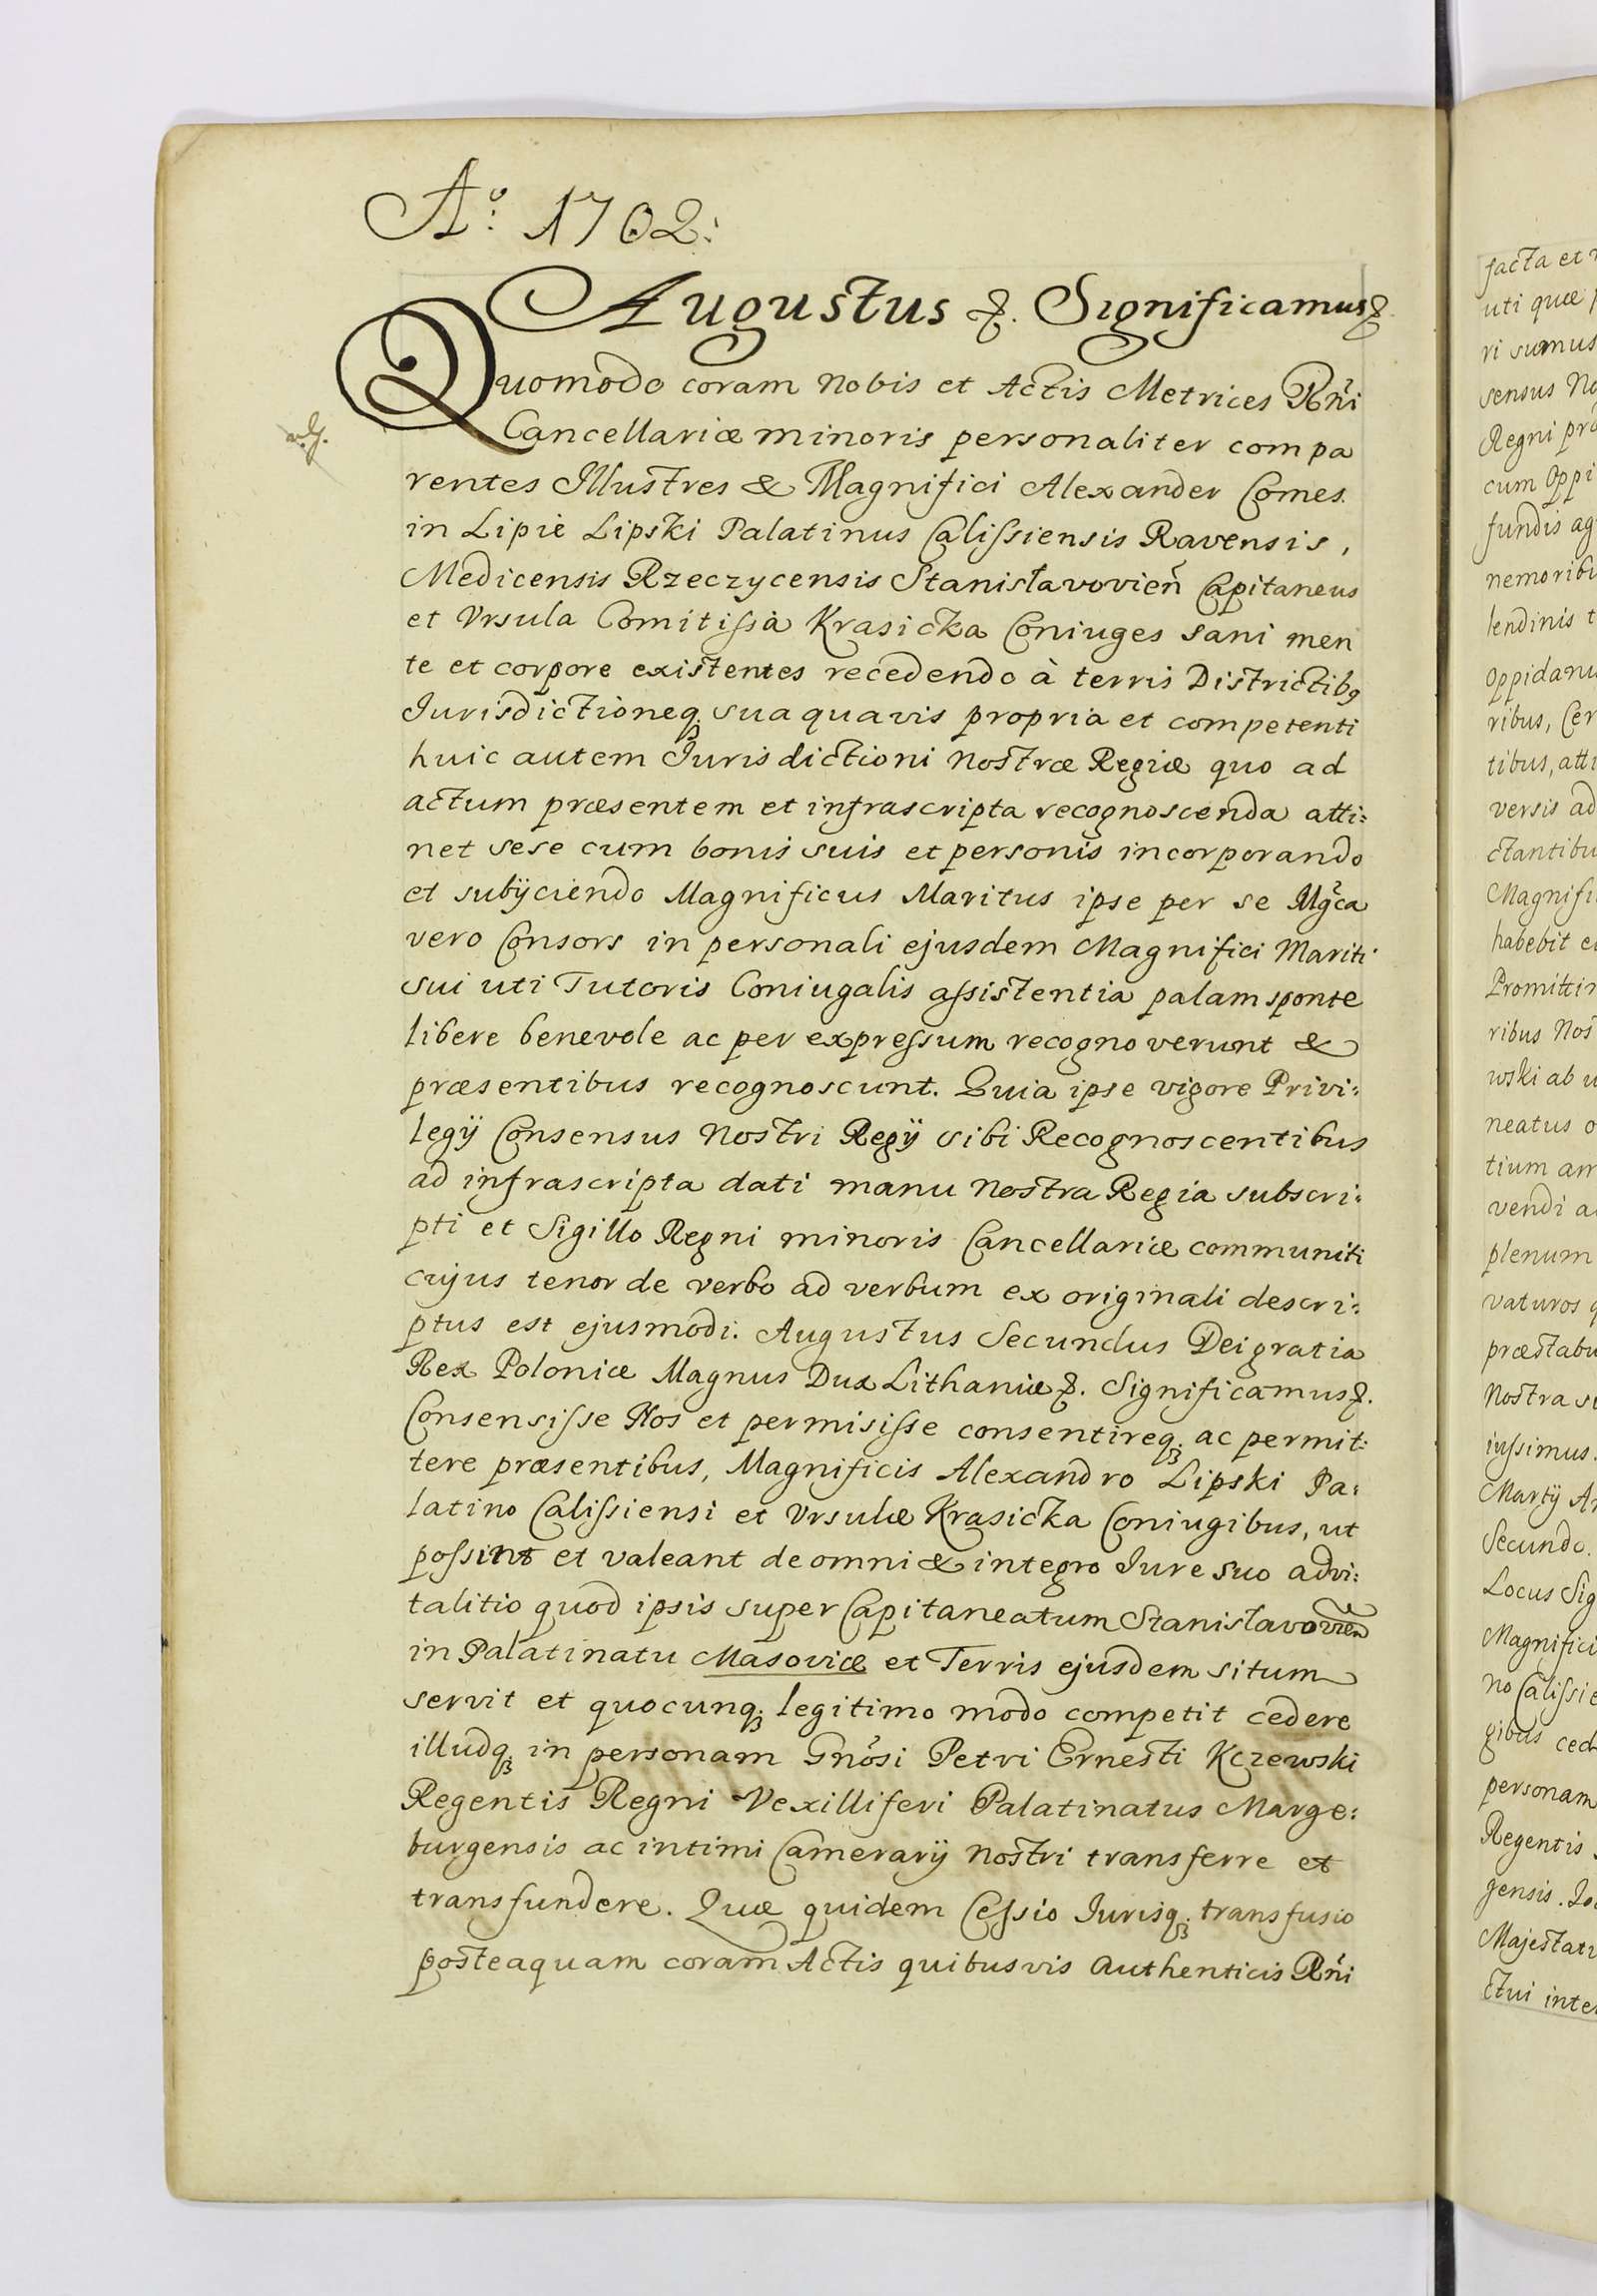 Aº: 1702:
Augustus &. Significamus &.
Quomodo coram Nobis et Actis Metrices Rñi
Cancellariæ minoris personaliter compa
rentes Illustres & Magnifici Alexander Comes
in Lipie Lipski Palatinus Calissiensis Ravensis,
Medicensis Rzeczycensis Stanisłavovieñ Capitaneus
et Vrsula Comitissa Krasicka Coniuges sani men
te et corpore existentes recedendo à terris Districtibꝯ
Jurisdictioneqꝫ sua quavis propria et competenti
huic autem Jurisdictioni Nostræ Regiæ quo ad
actum præsentem et infrascripta recognoscenda atti:
net sese cum bonis suis et personis incorporando
et subÿciendo Magnificus Maritus ipse per se Mg̃ca
vero Consors in personali ejusdem Magnifici Mariti
sui uti Tutoris Coniugalis assistentia palam sponte
libere benevole ac per expressum recognoverunt &
præsentibus recognoscunt. Quia ipse vigore Privi:
legÿ Consensus Nostri Regÿ sibi Recognoscentibus
ad infrascripta dati manu Nostra Regia subscri:
pti et Sigillo Regni minoris Cancellariæ communiti
cujus tenor de verbo ad verbum ex originali descri:
ptus est ejusmodi. Augustus Secundus Dei gratia
Rex Poloniæ Magnus Dux Lithaniæ &. Significamus &.
Consensisse Nos et permisisse consentireqꝫ ac permit:
tere præsentibus, Magnificis Alexandro Lipski Pa:
latino Calissiensi et Vrsulæ Krasicka Coniugibus, ut
possint et valeant de omni & integro Iure suo advi:
talitio quod ipsis super Capitaneatum Stanisłavovien̄
in Palatinatu Masoviæ et Terris ejusdem situm
servit et quocunqꝫ legitimo modo competit cedere
illudqꝫ in personam Gnõsi Petri Ernesti Kczewski
Regentis Regni Vexilliferi Palatinatus Marge:
burgensis ac intimi Camerarÿ Nostri transferre et
transfundere. Quæ quidem Cessio Iurisqꝫ transfusio
posteaquam coram Actis quibusvis Authenticis Rñi
facta et
uti quæ
ri sumus
sensus
Regni
cum Oppi
fundis ag
nemoribu
lendinis t
oppidanu
ribus, Cer
tibus, atti
versis ad
ctantibu
Magnifi
habebit e
Promittin
ribus Nos
wski ab u
neatus o
tium am
vendi a
plenum
vaturos q
præstabu
Nostra su
iussimus.
Martÿ A
Secundo.
Locus Sig
Magnifici
no Calissie
gibus ced
personam
Regentis
gensis.
Majestati
ctui inter